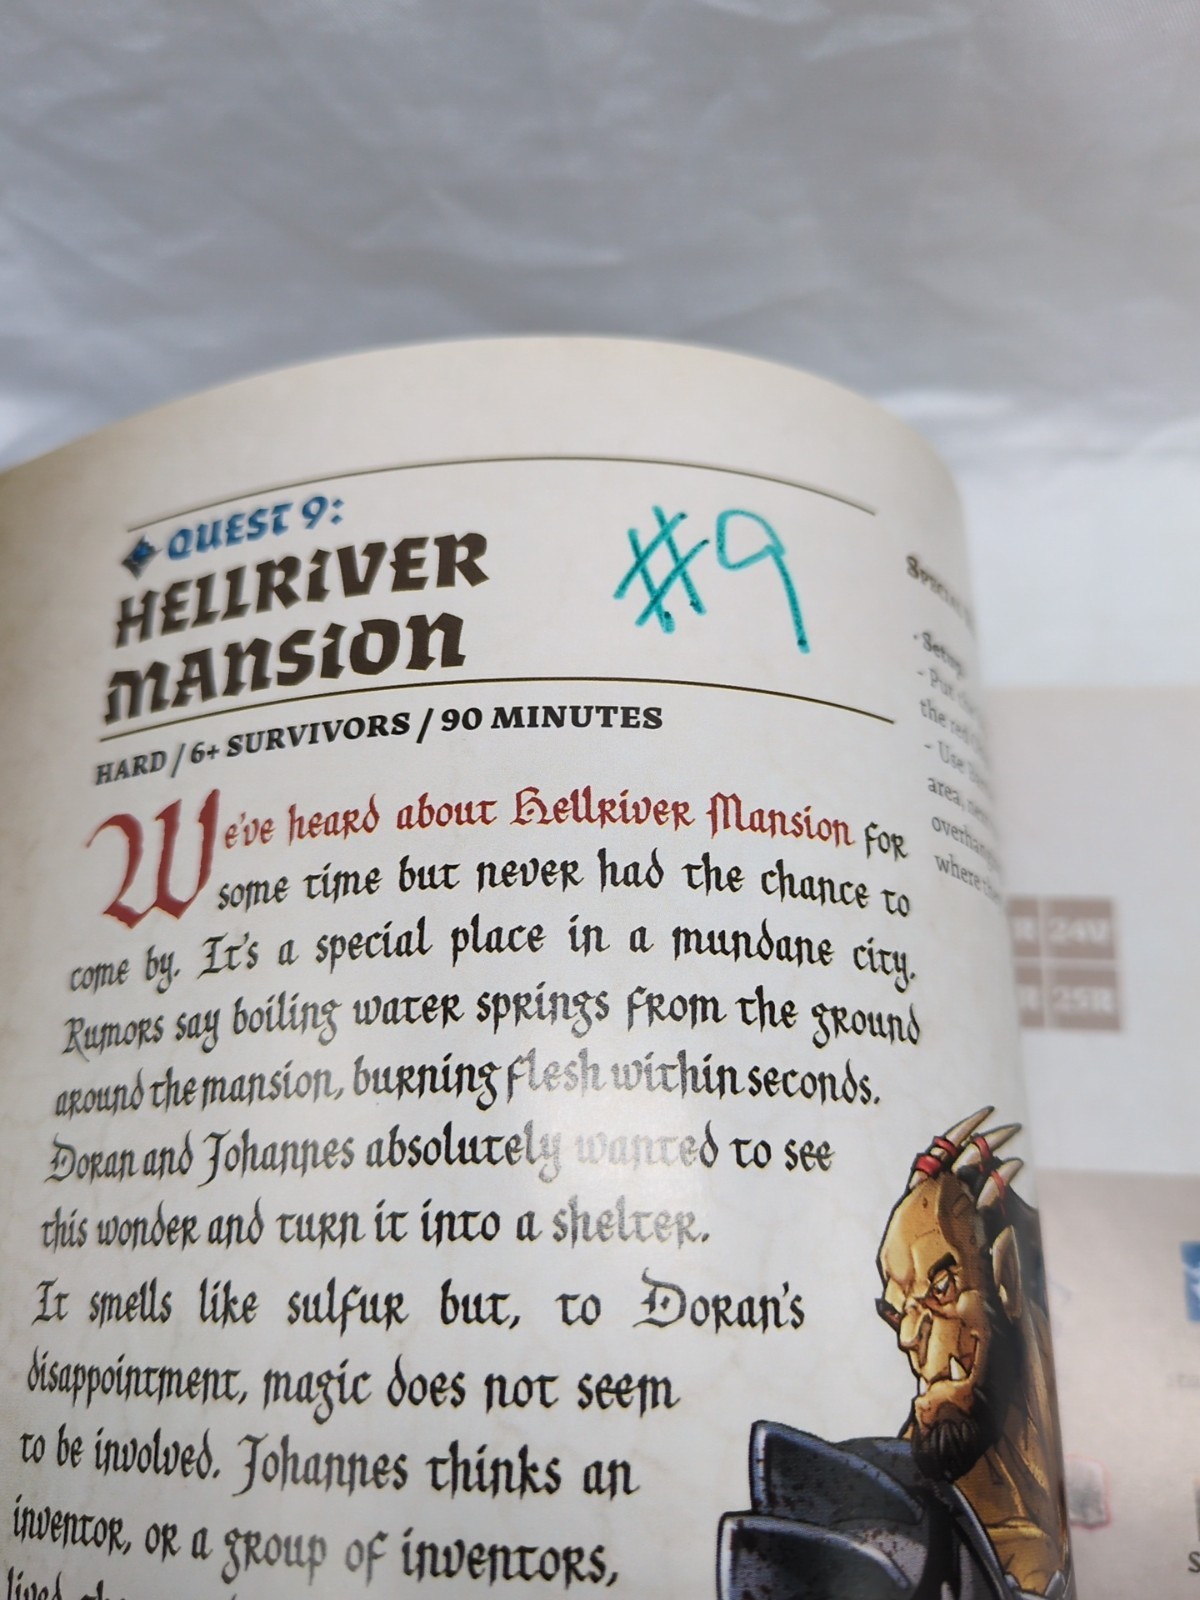 QUEST 9:
HELLRIVER
MANSION
#9
HARD / 6+ SURVIVORS / 90 MINUTES
We've heard about Hellriver Mansion for
some time but never had the chance to
come by. It's a special place in a mundane city.
Rumors say boiling water springs from the ground
around the mansion, burning flesh within seconds.
Doran and Johannes absolutely wanted to see
this wonder and turn it into a shelter.
It smells like sulfur but, to Doran's
disappointment, magic does not seem
to be involved. Johannes thinks an
inventor, or a group of inventors,
lived
- Put
the red
- Use
area,
where
24V
25R